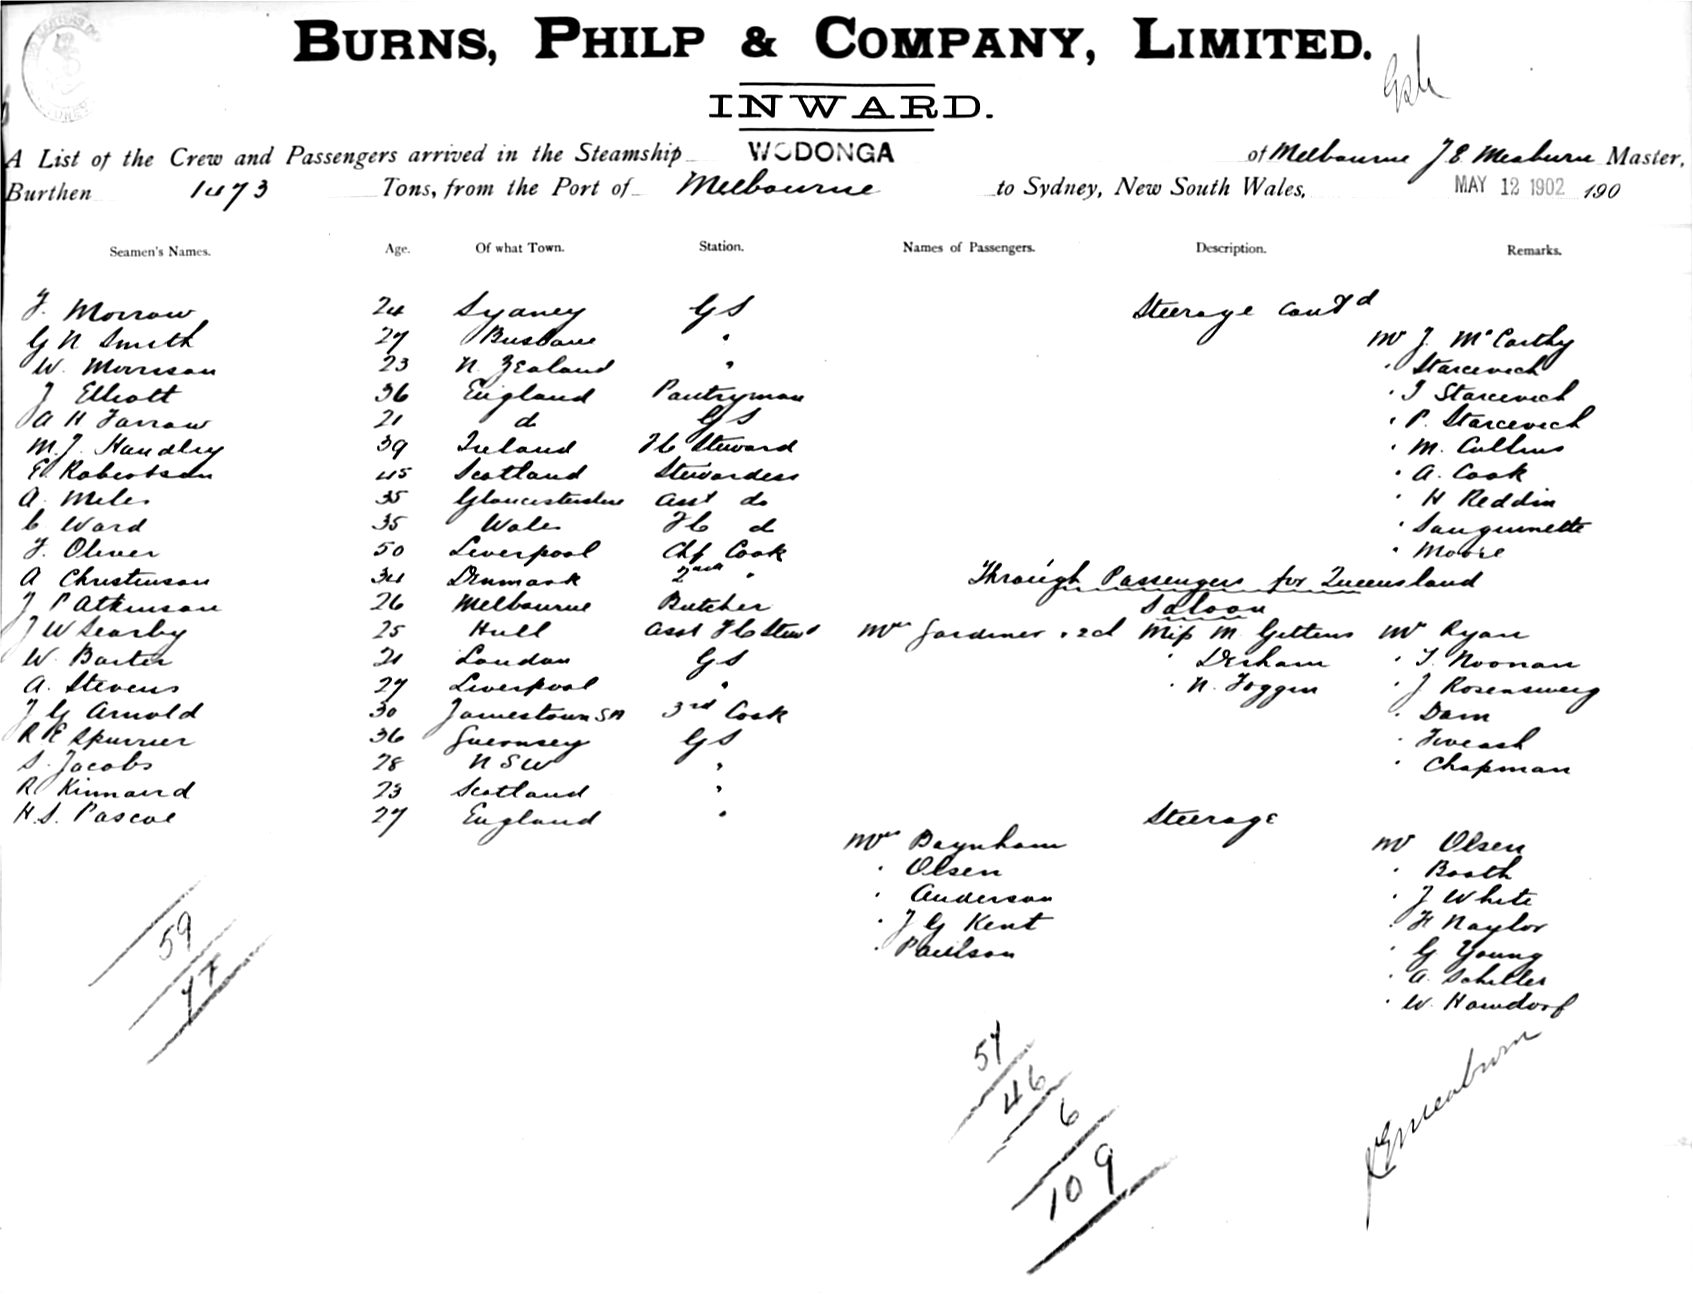 BURNS, PHILP & COMPANY, LIMITED.
INWARD.
A List of the Crew and Passengers arrived in the Steamship WODONGA of Melbourne J E Meaburn Master,
Burthen 1473 Tons, from the Port of Melbourne to Sydney, New South Wales, MAY 12 1902 190
Seamen's Names. Age. Of what Town. Station. Names of Passengers. Description. Remarks.
F. Morrow 24 Sydney GS Steerage Cont'd
G N Smith 27 Brisbane " Mr J. McCarthy
W. Morrison 23 N. Zealand " " Starcevich
J Elliott 36 England Pantryman " J Starcevich
A H Farrow 21 d GS " P. Starcevich
M. J. Handley 39 Ireland FC Steward " M. Cullins
E. Robertson 45 Scotland Stewardess " A. Cook
A. Miles 35 Gloucestershire Asst do " H Reddin
C Ward 35 Wales FC d " Sanguinette
F. Oliver 50 Liverpool Chf Cook " Moore
A Christenson 34 Denmark 2nd " Through Passengers for Queensland
J P Atkinson 26 Melbourne Butcher Saloon
J W Searby 25 Hull Asst FC Stewd Mrs Gardiner & 2cd Miss M. Gittens Mr Ryan
W. Barter 21 London GS " Disham " T. Noonan
A. Stevens 27 Liverpool " " N. Foggin " J Rosensweig
J G Arnold 30 Jamestown SA 3rd Cook " Dam
R E Spurrier 36 Guernsey GS " Fiveash
S. Jacobs 28 N S W " " Chapman
R Kinnaird 23 Scotland "
H. S. Pascoe 27 England " Steerage
Mrs Baynham Mr Olsen
" Olsen " Booth
" Anderson " J White
" J G Kent " H Naylor
" Paulson " G Young
" A. Schiller
" W. Hamdorf
59
57
46
6
109
J E Meaburn